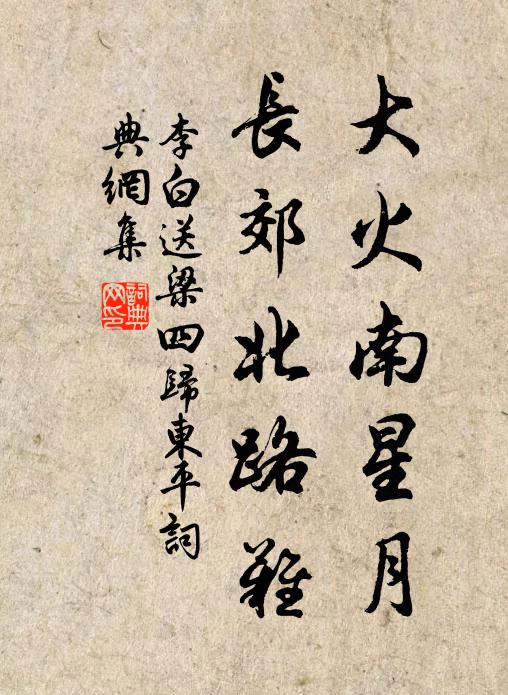 大火南星月
長郊北路難
李白送梁四歸東平詞
典網集
詞典
網印